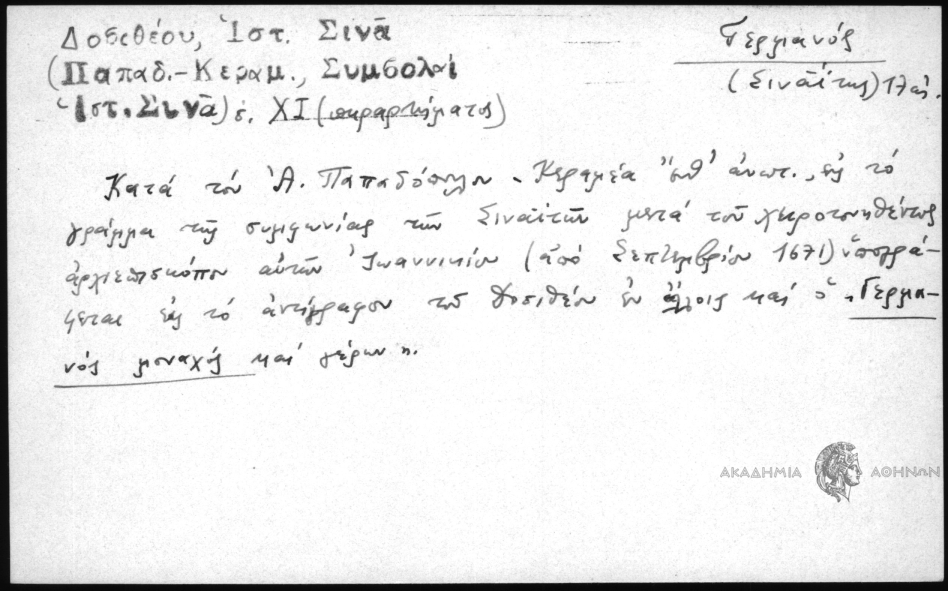 Δοσιθέου, Ἱστ. Σινᾶ
(Παπαδ.-Κεραμ., Συμβολαί
Ἱστ. Σινᾶ) σ. XI (παραρτήματος)
Γερμανός
(Σιναΐτης) 17 αἰ.
Κατά τόν Ἀ. Παπαδόπουλον - Κεραμέα ἔνθ' ἀνωτ., εἰς τό
γράμμα τῆς συμφωνίας τῶν Σιναϊτῶν μετά τοῦ χειροτονηθέντος
ἀρχιεπισκόπου αὐτῶν Ἰωαννικίου (ἀπό Σεπτεμβρίου 1671) ὑπογρά-
φεται εἰς τό ἀντίγραφον τοῦ Δοσιθέου ἐν ἄλλοις καί ὁ "Γερμα-
νός μοναχός καί γέρων".
ΑΚΑΔΗΜΙΑ ΑΘΗΝΩΝ